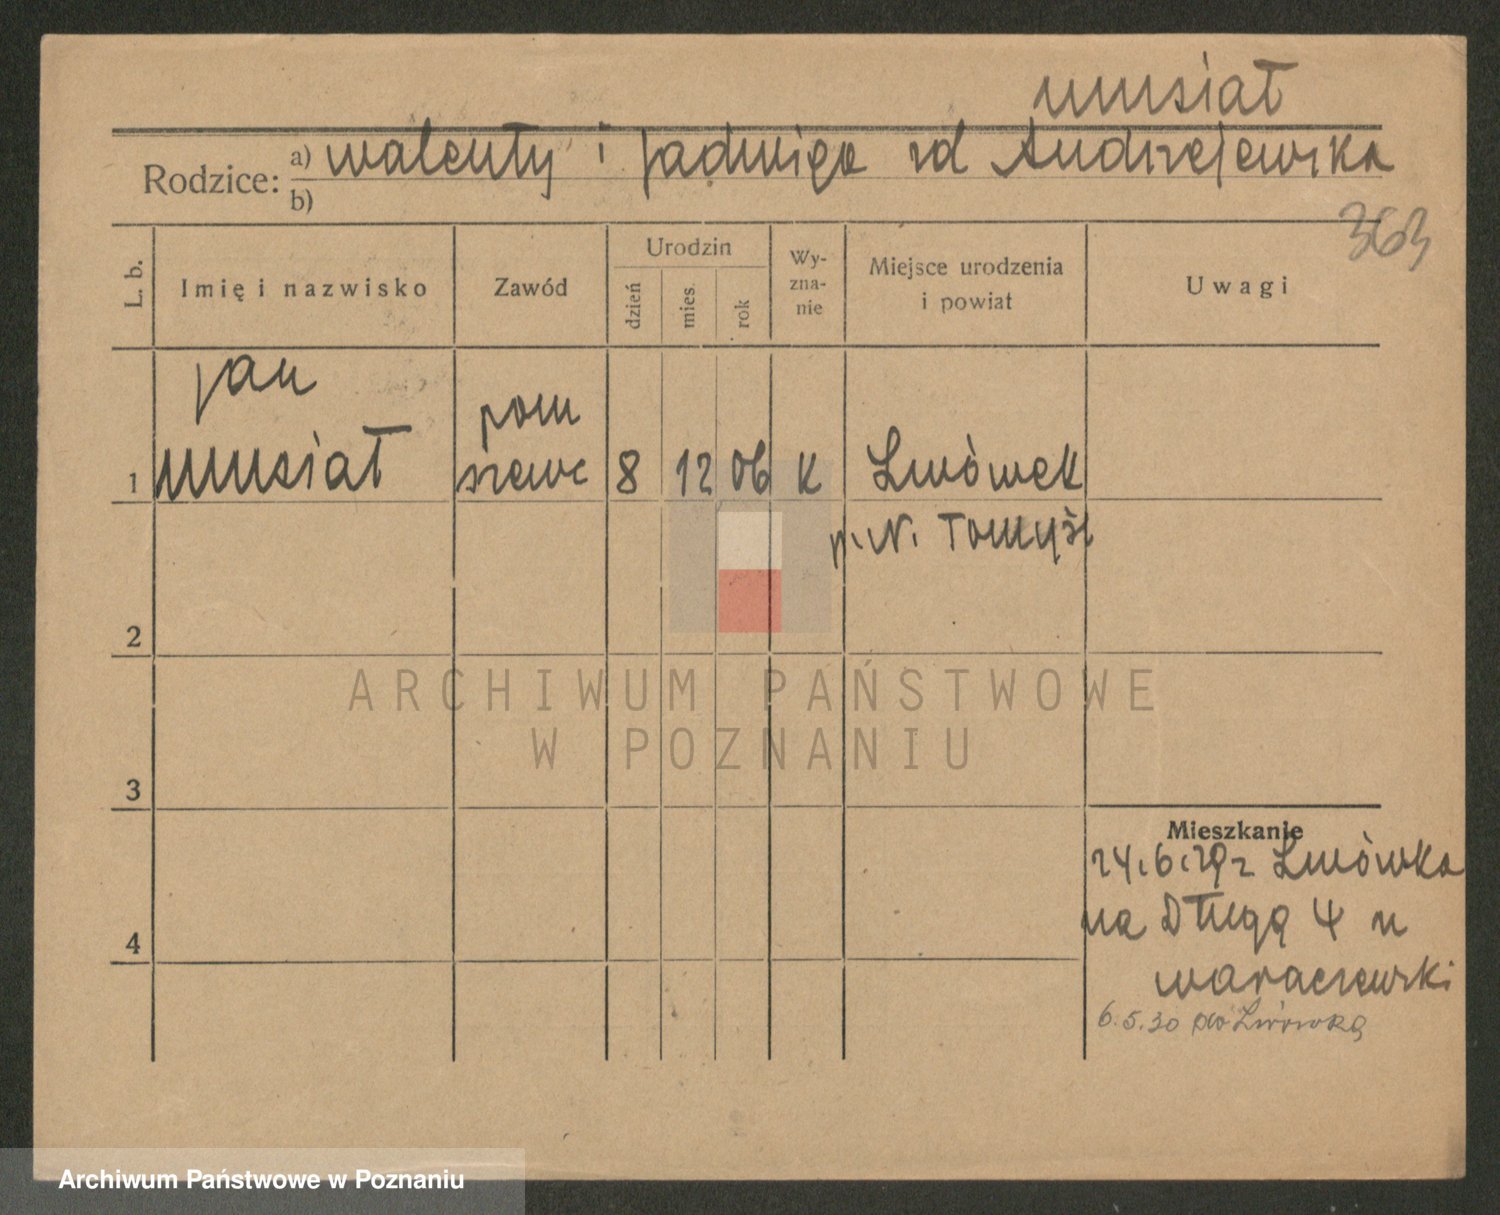 musiał
Rodzice: a) walenty i jadwiga zd Andrzejewska
b)
363
L. b.
Imię i nazwisko
Zawód
Urodzin
dzień
mies.
rok
Wy-
zna-
nie
Miejsce urodzenia
i powiat
Uwagi
jan
pom
1 musiał szewc 8 12 06 K Lwówek
p. N. Tomyśl
2
ARCHIWUM PAŃSTWOWE
W POZNANIU
3
Mieszkanie
24.6.29 z Lwówka
na Długą 4 u
4
waraczewski
6.5.30 do Lwówka
Archiwum Państwowe w Poznaniu